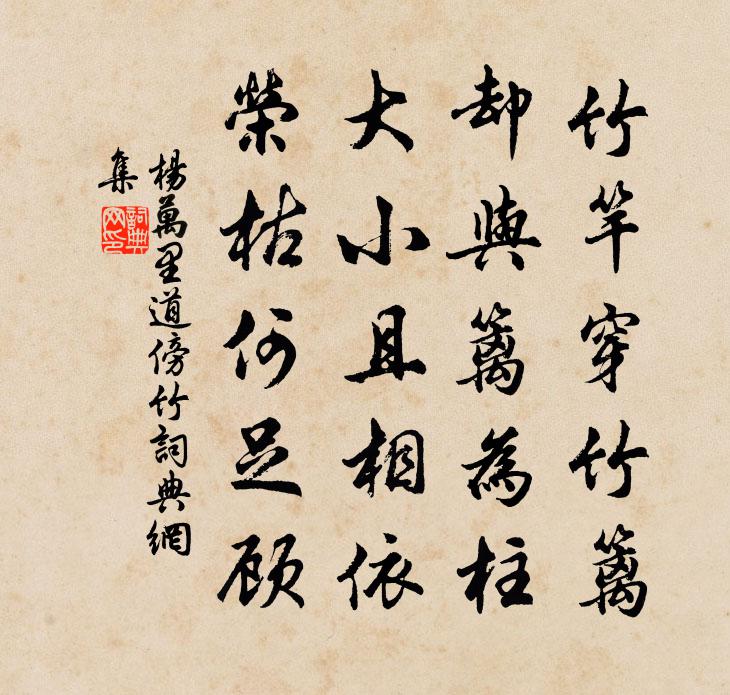 竹竿穿竹篱
却與篱為柱
大小且相依
榮枯何足顾
楊萬里道傍竹詞典網
集
詞典
网印